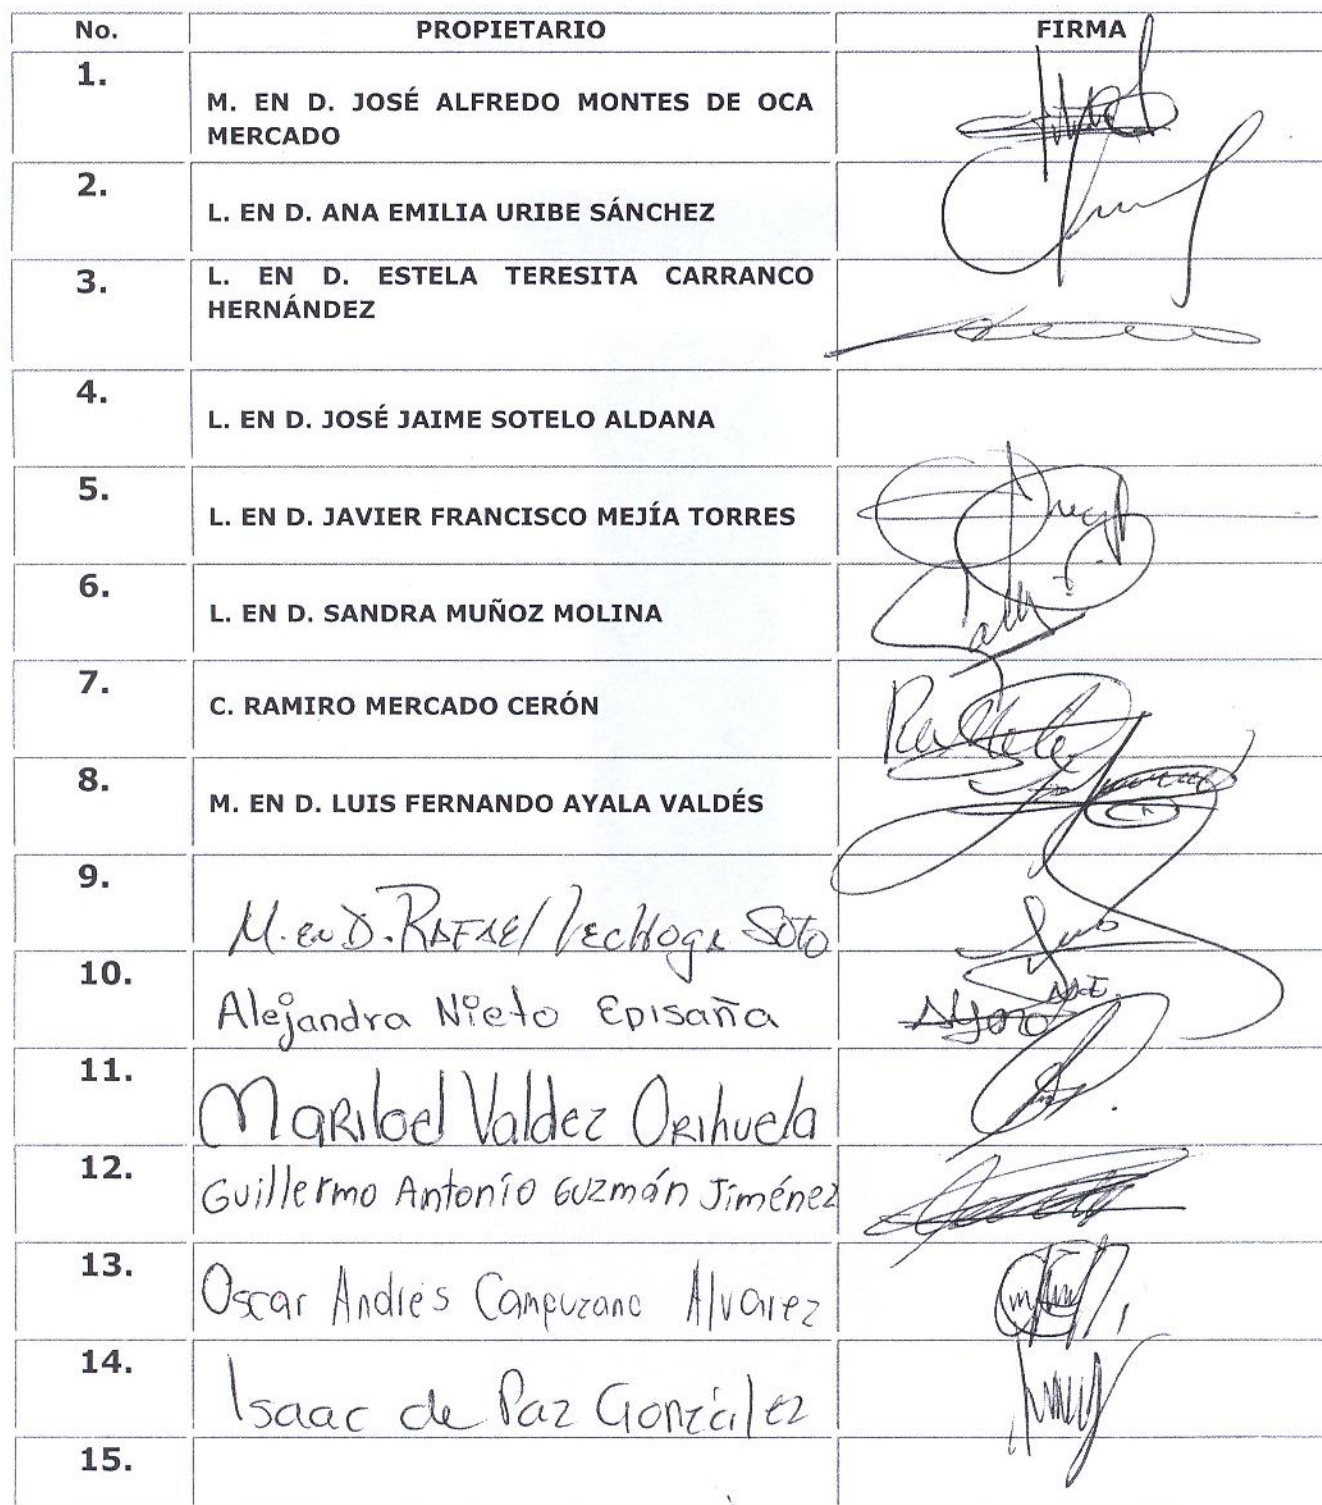 No. PROPIETARIO FIRMA
1.
M. EN D. JOSÉ ALFREDO MONTES DE OCA
MERCADO
2.
L. EN D. ANA EMILIA URIBE SÁNCHEZ
3.
L. EN D. ESTELA TERESITA CARRANCO
HERNÁNDEZ
4.
L. EN D. JOSÉ JAIME SOTELO ALDANA
5.
L. EN D. JAVIER FRANCISCO MEJÍA TORRES
6.
L. EN D. SANDRA MUÑOZ MOLINA
7.
C. RAMIRO MERCADO CERÓN
8.
M. EN D. LUIS FERNANDO AYALA VALDÉS
9.
M. en D. RAFAEl lecHoga Soto
10.
Alejandra Nieto Episaña
11.
Maribel Valdez Orihuela
12.
Guillermo Antonio Guzmán Jiménez
13.
Oscar Andrés Campuzano Alvarez
14.
Isaac de Paz González
15.